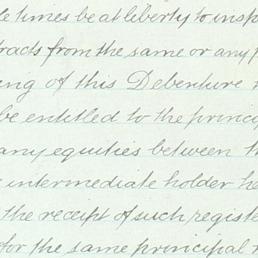 times be at liberty to insp
tracts from the same or any
ing of this Debenture
be entitled to the princip
any equities between th
intermediate holder he
the receipt of such registe
for the same principal